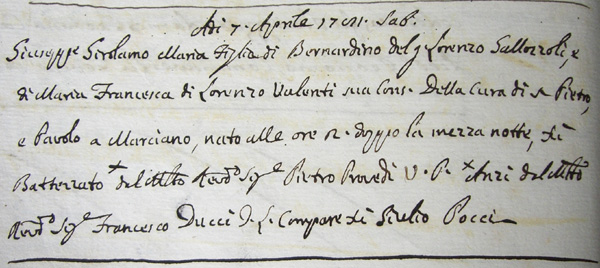 Adi 7. Aprile 1721. Sab.
Giuseppe Girolamo Maria Figlio di Bernardino del q Lorenzo Gallozzoli, e
di Maria Francesca di Lorenzo Valenti sua Cons. Della Cura di S. Pietro,
e Pavolo a Marciano, nato alle ore 12. doppo la mezza notte, fù
Battezzato + dal Molto Revdo Sige Pietro Provedi V. P. + Anzi dal Molto
Revdo Sige Francesco Ducci d. L. Compare fù Giulio Pocci